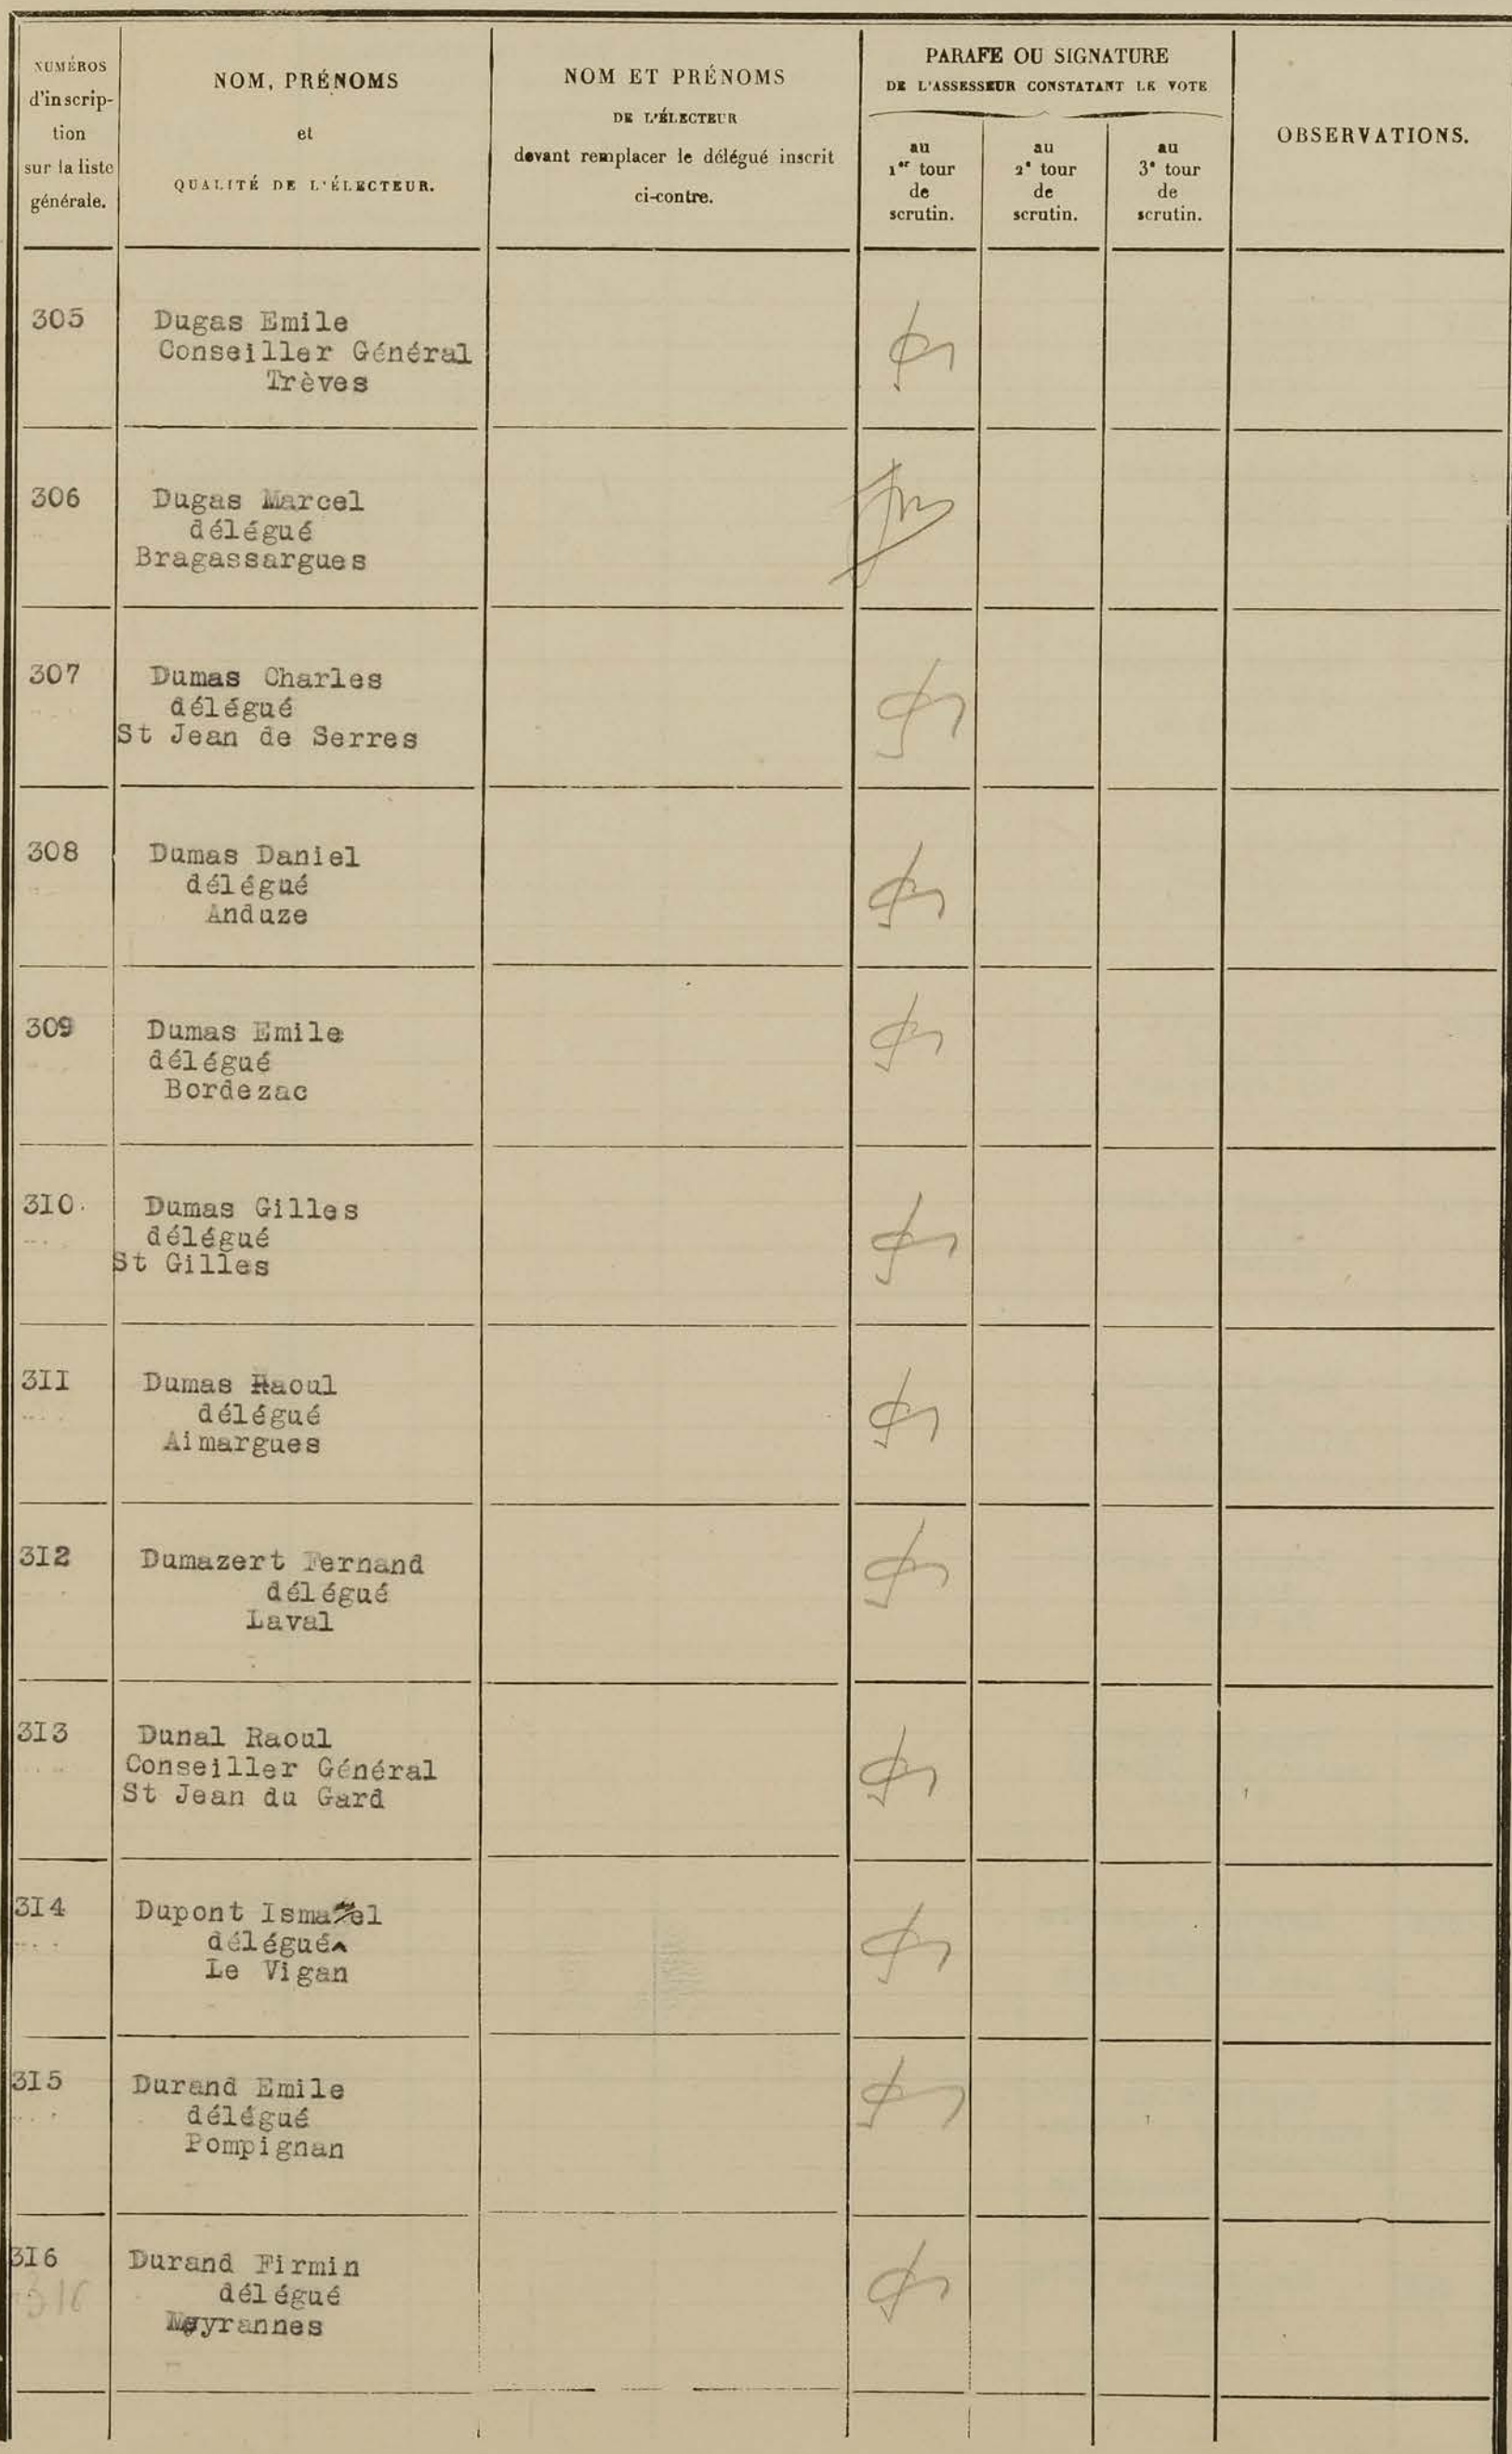 NUMÉROS
d'inscrip-
tion
sur la liste
générale.
NOM, PRÉNOMS
et
QUALITÉ DE L'ÉLECTEUR.
NOM ET PRÉNOMS
DE L'ÉLECTEUR
devant remplacer le délégué inscrit
ci-contre.
PARAFE OU SIGNATURE
DE L'ASSESSEUR CONSTATANT LE VOTE
au
1er tour
de
scrutin.
au
2e tour
de
scrutin.
au
3e tour
de
scrutin.
OBSERVATIONS.
305
Dugas Emile
Conseiller Général
Trèves
306
Dugas Marcel
délégué
Bragassargues
307
Dumas Charles
délégué
St Jean de Serres
308
Dumas Daniel
délégué
Anduze
309
Dumas Emile
délégué
Bordezac
3I0.
Dumas Gilles
délégué
St Gilles
3II
Dumas Raoul
délégué
Aimargues
3I2
Dumazert Fernand
délégué
Laval
3I3
Dunal Raoul
Conseiller Général
St Jean du Gard
3I4
Dupont Ismaël
délégué
Le Vigan
3I5
Durand Emile
délégué
Pompignan
3I6
316
Durand Firmin
délégué
Meyrannes